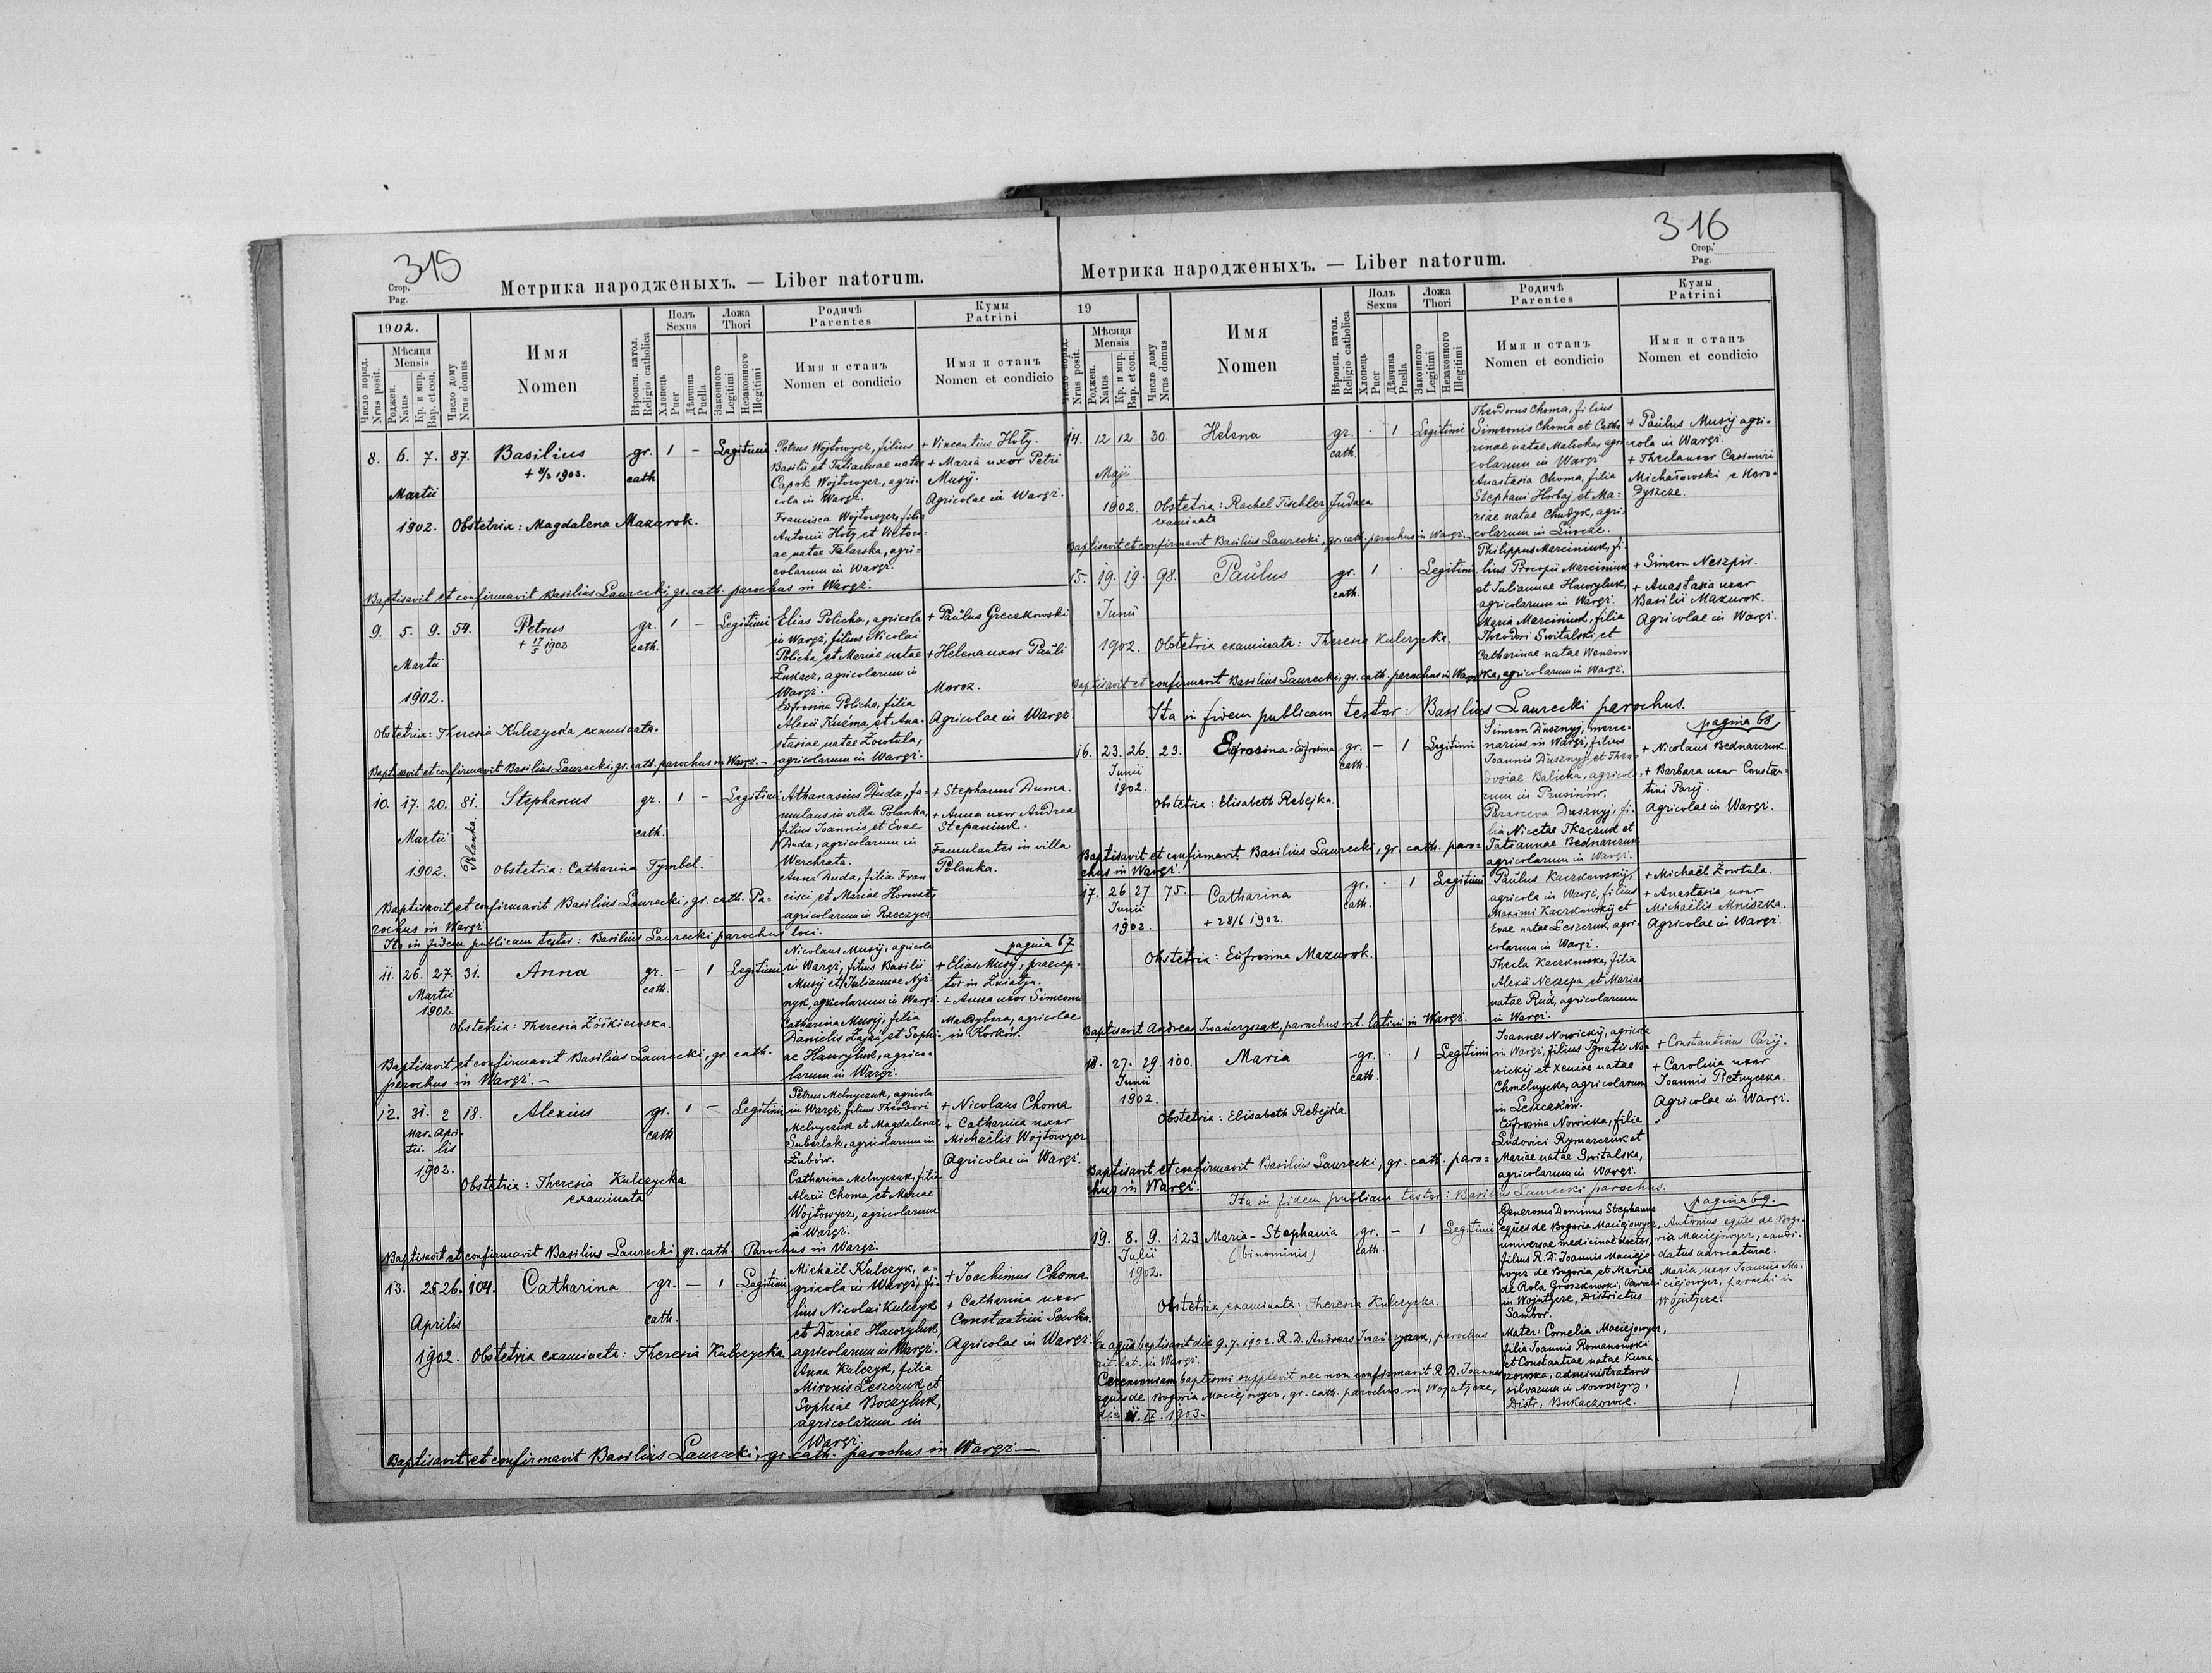 315
Стор.
Pag.
Метрика народженыхъ. — Liber natorum.
1902.
Число поряд.
Nrus posit.
Мѣсяця
Mensis
Роджен.
Natus
Кр. и мир.
Bap. et con.
Число дому
Nrus domus
Имя
Nomen
Вѣроисп. катол.
Religio catholica
Полъ
Sexus
Хлопець
Puer
Дѣвчина
Puella
Ложа
Thori
Законного
Legitimi
Незаконного
Illegitimi
Родичѣ
Parentes
Имя и станъ
Nomen et condicio
Кумы
Patrini
Имя и станъ
Nomen et condicio
8. 6. 7. 87. Basilius gr. 1 - Legitimi
+ 8/3 1903. cath
Martii
1902. Obstetrix: Magdalena Mazurok.
Petrus Wojtowycz, filius
Basilii et Tatiannae natae
Capok Wojtowycz, agri-
cola in Waręż.
Francisca Wojtowycz, filia
Antonii Hoły et Victori-
ae natae Talarska, agri-
colarum in Waręż.
+ Vincentius Hoły.
+ Maria uxor Petri
Musij.
Agricolae in Waręż.
Baptisavit et confirmavit Basilius Laurecki, gr. cath. parochus in Waręż.
9. 5. 9. 54. Petrus gr. 1 - Legitimi
+ 17/5 1902 cath.
Martii
1902.
Obstetrix: Theresia Kulczycka examinata.
Elias Policha, agricola
in Waręż, filius Nicolai
Policha et Mariae natae
Łukacz, agricolarum in
Waręż.
Eufrosina Policha, filia
Alexii Kuźma et Ana-
stasiae natae Żowtula,
agricolarum in Waręż.
+ Paulus Greczkowski
+ Helena uxor Pauli
Moroz.
Agricolae in Waręż.
Baptisavit et confirmavit Basilius Laurecki, gr. cath. parochus in Waręż. -
10. 17. 20. 81. Stephanus gr. 1 - Legitimi
Polanka.
Martii cath.
1902. Obstetrix: Catharina Tymbel.
Athanasius Duda, fa-
mulans in villa Polanka,
filius Joannis et Evae
Duda, agricolarum in
Werchrata.
Anna Duda, filia Fran
cisci et Mariae Horwat,
agricolarum in Rzeczyca
+ Stephanus Duma.
+ Anna uxor Andrea
Stepaniuk.
Famulantes in villa
Polanka.
Baptisavit et confirmavit Basilius Laurecki, gr. cath. Pa-
rochus in Waręż
Ita in fidem publicam testor: Basilius Laurecki parochus loci.
pagina 67
11. 26. 27. 31. Anna gr. - 1 Legitimi
Martii cath.
1902.
Obstetrix: Theresia Żółkiewska.
Nicolaus Musij, agricola
in Waręż, filius Basilii
Musij et Juliannae Nyż
nyk, agricolarum in Waręż.
Catharina Musij, filia
Danielis Zając et Sophi-
ae Hawryluk, agrico-
larum in Waręż.
+ Elias Musij, praecep-
tor in Żniatyn.
+ Anna uxor Simeonis
Mandybura, agricolae
in Korków.
Baptisavit et confirmavit Basilius Laurecki, gr. cath.
parochus in Waręż. -
12. 31. 2 18. Alexius gr. 1 - Legitimi
Mar- Apri-
tii. lis cath
1902.
Obstetrix: Theresia Kulczycka
examinata
Petrus Melnyczuk, agricola
in Waręż, filius Theodori
Melnyczuk et Magdalenae
Suberlak, agricolarum in
Łubów.
Catharina Melnyczuk, filia
Alexii Choma et Mariae
Wojtowycz, agricolarum
in Waręż.
+ Nicolaus Choma
+ Catharina uxor
Michaelis Wojtowycz
Agricolae in Waręż.
Baptisavit et confirmavit Basilius Laurecki, gr. cath. Parochus in Waręż.
13. 25. 26. 104. Catharina gr. - 1 Legitimi
Aprilis cath.
1902. Obstetrix examinata: Theresia Kulczycka.
Michaël Kulczyk, a-
gricola in Waręż, fi-
lius Nicolai Kulczyk
et Dariae Hawryluk,
agricolarum in Waręż.
Anna Kulczyk, filia
Mironis Leszczuk et
Sophiae Boczyluk,
agricolarum in
Waręż.
+ Joachimus Choma
+ Catharina uxor
Constantini Sawka.
Agricolae in Waręż.
Baptisavit et confirmavit Basilius Laurecki, gr. cath. parochus in Waręż -
316
Стор.
Pag.
Метрика народженыхъ. — Liber natorum.
19
Число поряд.
Nrus posit.
Мѣсяця
Mensis
Роджен.
Natus
Кр. и мир.
Bap. et con.
Число дому
Nrus domus
Имя
Nomen
Вѣроисп. катол.
Religio catholica
Полъ
Sexus
Хлопець
Puer
Дѣвчина
Puella
Ложа
Thori
Законного
Legitimi
Незаконного
Illegitimi
Родичѣ
Parentes
Имя и станъ
Nomen et condicio
Кумы
Patrini
Имя и станъ
Nomen et condicio
14. 12 12 30. Helena gr. · 1 Legitimi
cath.
Maji
1902. Obstetrix: Rachel Tischler Judaea
examinata
Theodorus Choma, filius
Simeonis Choma et Catha
rinae natae Malicka, agri
colarum in Waręż
Anastasia Choma, filia
Stephani Horbaj et Ma-
riae natae Chudyk, agri-
colarum in Liwcze.
+ Paulus Musij agri-
cola in Waręż.
+ Thecla uxor Casimiri
Michałowski e Horo-
dyszcze.
Baptisavit et confirmavit Basilius Laurecki, gr. cath. parochus in Waręż.
15. 19. 19. 98. Paulus gr. 1 · Legitimi
cath.
Junii
1902. Obstetrix examinata: Theresia Kulczycka.
Philippus Marciniuk, fi-
lius Procopii Marciniuk
et Juliannae Hawryluk,
agricolarum in Waręż.
Maria Marciniuk, filia
Theodori Switalski, et
Catharinae natae Wenzow
ka, agricolarum in Waręż.
+ Simeon Neszpir.
+ Anastasia uxor
Basilii Mazurok.
Agricolae in Waręż.
Baptisavit et confirmavit Basilius Laurecki, gr. cath. parochus in Waręż
Ita in fidem publicam testor: Basilius Laurecki parochus.
pagina 68
16. 23. 26. 23. Eufrosina = Eufrosina gr. - 1 Legitimi
Junii cath.
1902.
Obstetrix: Elisabeth Rebejka.
Simeon Dusznyj, merce-
narius in Waręż, filius
Joannis Dusznyj et Theo-
dosiae Balicka, agricola-
rum in Prusinów.
Parasceva Dusznyj, fi-
lia Nicetae Tkaczuk et
Tatiannae Bednarczuk
agricolarum in Waręż.
+ Nicolaus Bednarczuk.
+ Barbara uxor Constan-
tini Parij.
Agricolae in Waręż.
Baptisavit et confirmavit Basilius Laurecki, gr. cath. paro-
chus in Waręż.
17. 26 27 75. Catharina gr. · 1 Legitimi
Junii cath.
1902. + 28/6 1902.
Obstetrix: Eufrosina Mazurok.
Paulus Kaczkowskij,
agricola in Waręż, filius
Maximi Kaczkowskij et
Evae natae Leszczuk, agri-
colarum in Waręż.
Thecla Kaczkowska, filia
Alexii Neczepa et Mariae
natae Rud, agricolarum
in Waręż.
+ Michaël Żowtula.
+ Anastasia uxor
Michaëlis Mniszka.
Agricolae in Waręż.
Baptisavit Andreas Iwańczyszak, parochus rit. latini in Waręż.
18. 27. 29. 100. Maria gr. · 1 Legitimi
Junii cath.
1902.
Obstetrix: Elisabeth Rebejka.
Joannes Nowickij, agricola
in Waręż, filius Ignatii No-
wickij et Xeniae natae
Chmelnycka, agricolarum
in Leszczków.
Eufrosina Nowicka, filia
Ludovici Rymarczuk et
Mariae natae Switalska,
agricolarum in Waręż.
+ Constantinus Parij.
+ Carolina uxor
Joannis Pietnyczka.
Agricolae in Waręż.
Baptisavit et confirmavit Basilius Laurecki, gr. cath. paro-
chus in Waręż.
Ita in fidem publicam testor: Basilius Laurecki parochus.
pagina 69.
19. 8. 9. 123 Maria - Stephania gr. - 1 Legitimi
Julii (binominis) cath.
1902.
Obstetrix examinata: Theresia Kulczycka.
Generosus Dominus Stephanus
eques de Bogoria Maciejowycz,
universae medicinae doctor,
filius R. D. Joannis Maciejo-
wycz de Bogoria et Mariae
de Rola Groszkowski, Parochi
in Wojutycze, Districtus
Sambor.
Mater: Cornelia Maciejowycz,
filia Joannis Romanowski
et Constantiae natae Kuna-
szowska, administratoris
silvarum in Nowoszyny,
Distr. Bukaczowce.
Antonius eques de Bogo-
ria Maciejowycz, candi-
datus advocaturae.
Maria uxor Joannis Ma-
ciejowycz, parochi in
Wojutycze.
Ex aqua baptisavit die 9. 7. 1902. R. D. Andreas Iwańczyszak, parochus
rit. lat. in Waręż.
Ceremoniam baptismi supplevit nec non confirmavit R. D. Joannes
eques de Bogoria Maciejowycz, gr. cath. parochus in Wojutycze,
die 11. IX. 1903.